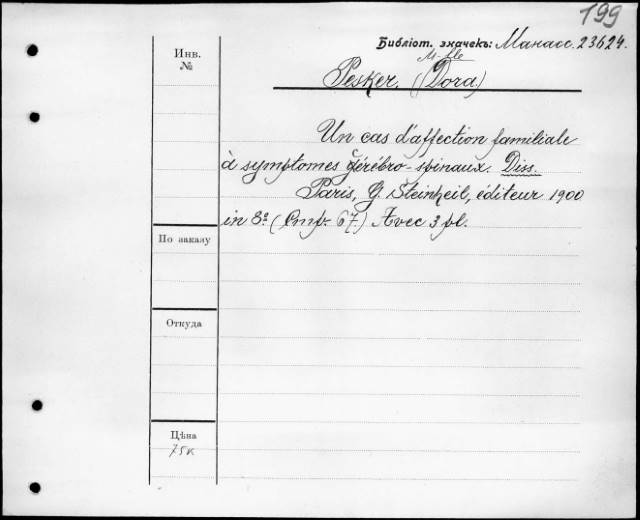 199
Библіот. значекъ: Манасс. 23624.
Инв.
№
M-lle
Pesker. (Dora)
Un cas d'affection familiale
à symptomes cérébro-spinaux. Diss.
Paris, G. Steinheil, éditeur 1900
in 8º (Стр. 67.) Avec 3 pl.
По заказу
Откуда
Цѣна
75к